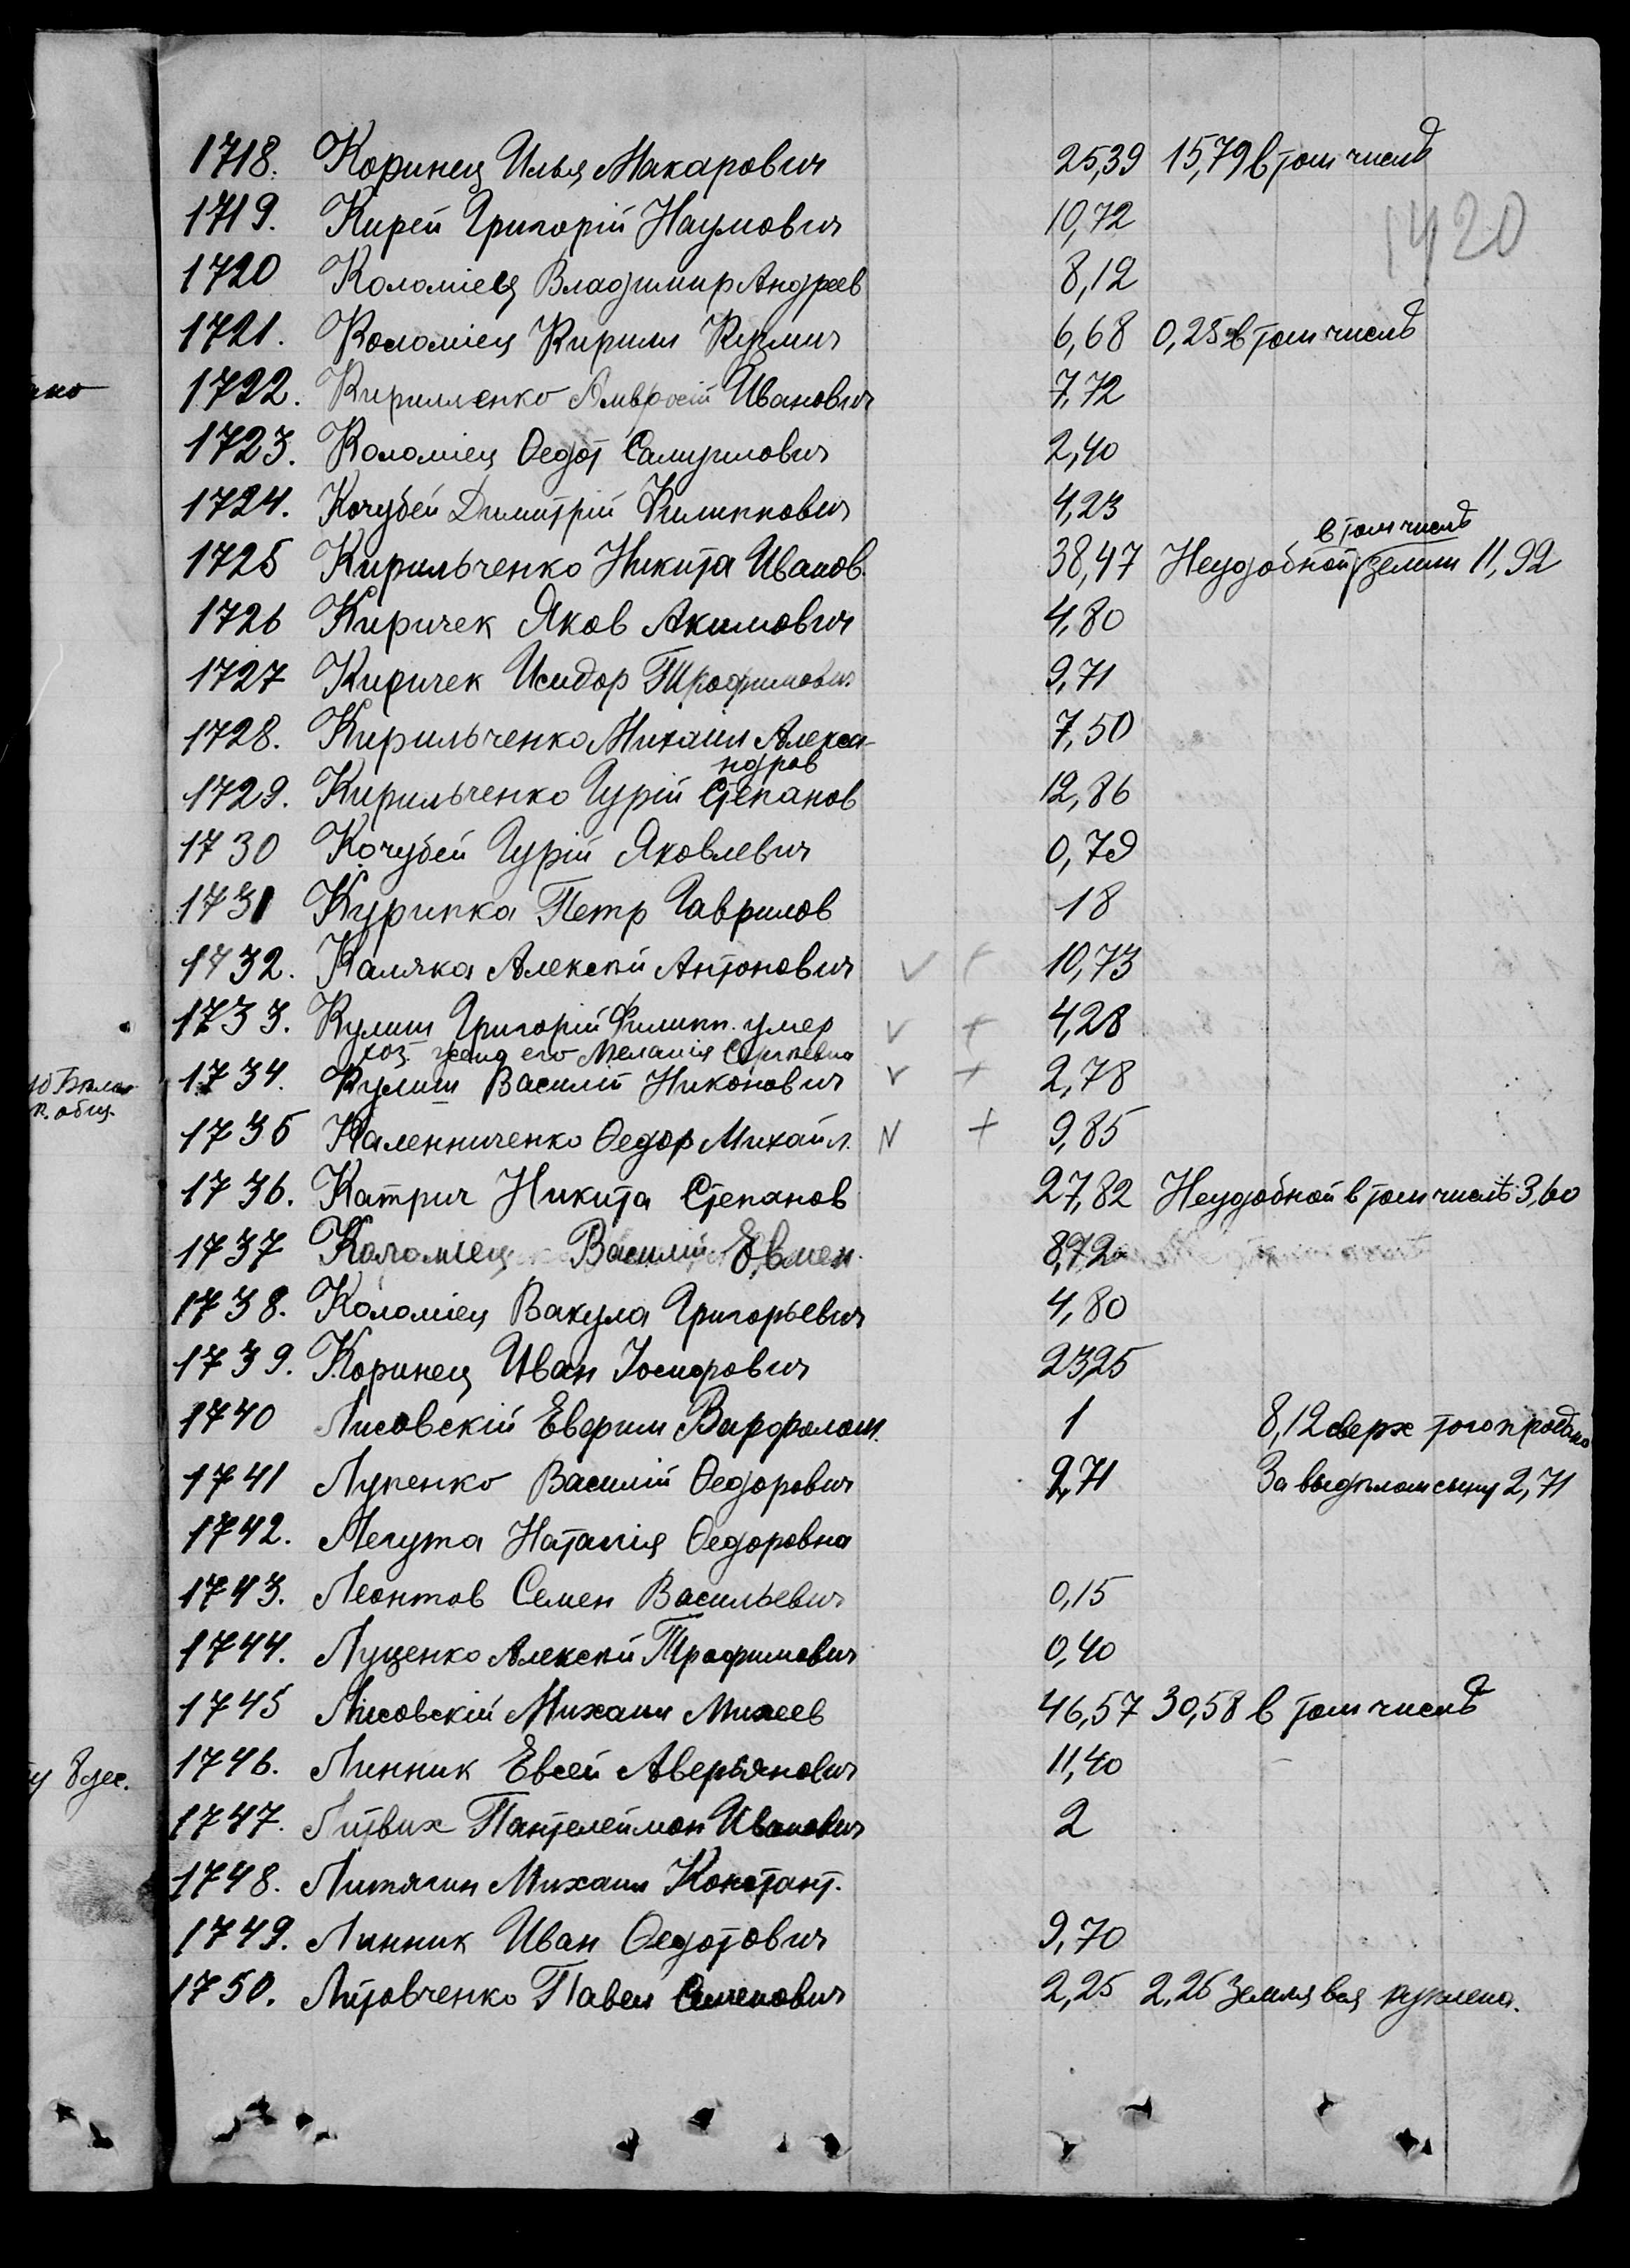 1718. Коринец Илья Макарович 25,39 15,79 в том числѣ
1420
1719. Кирей Григорій Наумович 10,72
1720 Коломіец Владимир Андреев 8,12
1721. Коломіец Кирилл Кузмич 6,68 0,25 в том числѣ
1722. Кирилленко Амвросій Иванович 7,72
1723. Коломіец Ѳедот Самуилович 2,40
1724. Кочубей Димитрій Филиппович 4,23
в том числѣ
1725 Кирильченко Никита Иванов. 38,47 Неудобной земли 11,92
1726 Киричек Яков Акимович 4,80
1727 Киричек Исидор Трофимович 9,71
1728. Кирильченко Михаил Алекса- 7,50
ндров
1729. Кирильченко Гурій Степанов 12,86
1730 Кочубей Гурій Яковлевич 0,79
1731 Курипка Петр Гаврилов 18
1732. Каляка Алексѣй Антонович V + 10,73
1733. Кулиш Григорій Филипп. умер V + 4,28
хоз. жена его Меланія Сергѣевна
1734. Кулиш Василій Никонович V + 2,78
1735 Каленниченко Ѳедор Михайл. V + 9,85
1736. Катрич Никита Степанов 27,82 Неудобной в том числѣ 3,60
1737 Коломіец Василій Евмен. 8,72
1738. Коломіец Вакула Григорьевич 4,80
1739. Коринец Иван Іосифович 23,25
1740 Лисовскій Евфим Варфолом. 1 8,12 сверх того продано
1741 Лупенко Василій Ѳедорович 9,71 За выдѣлом сыну 2,71
1742. Легута Наталія Ѳедоровна
1743. Леонтов Семен Васильевич 0,15
1744. Луценко Алексѣй Трофимович 0,40
1745 Лисовскій Михаил Михеев 46,57 30,58 в том числѣ
1746. Линник Евсей Аверьянович 11,40
1747. Литвих Пантелеймон Иванович 2
1748. Литягин Михаил Констант.
1749. Линник Иван Ѳедотович 9,70
1750. Литовченко Павел Семенович 2,25 2,25 Земля вся куплена.